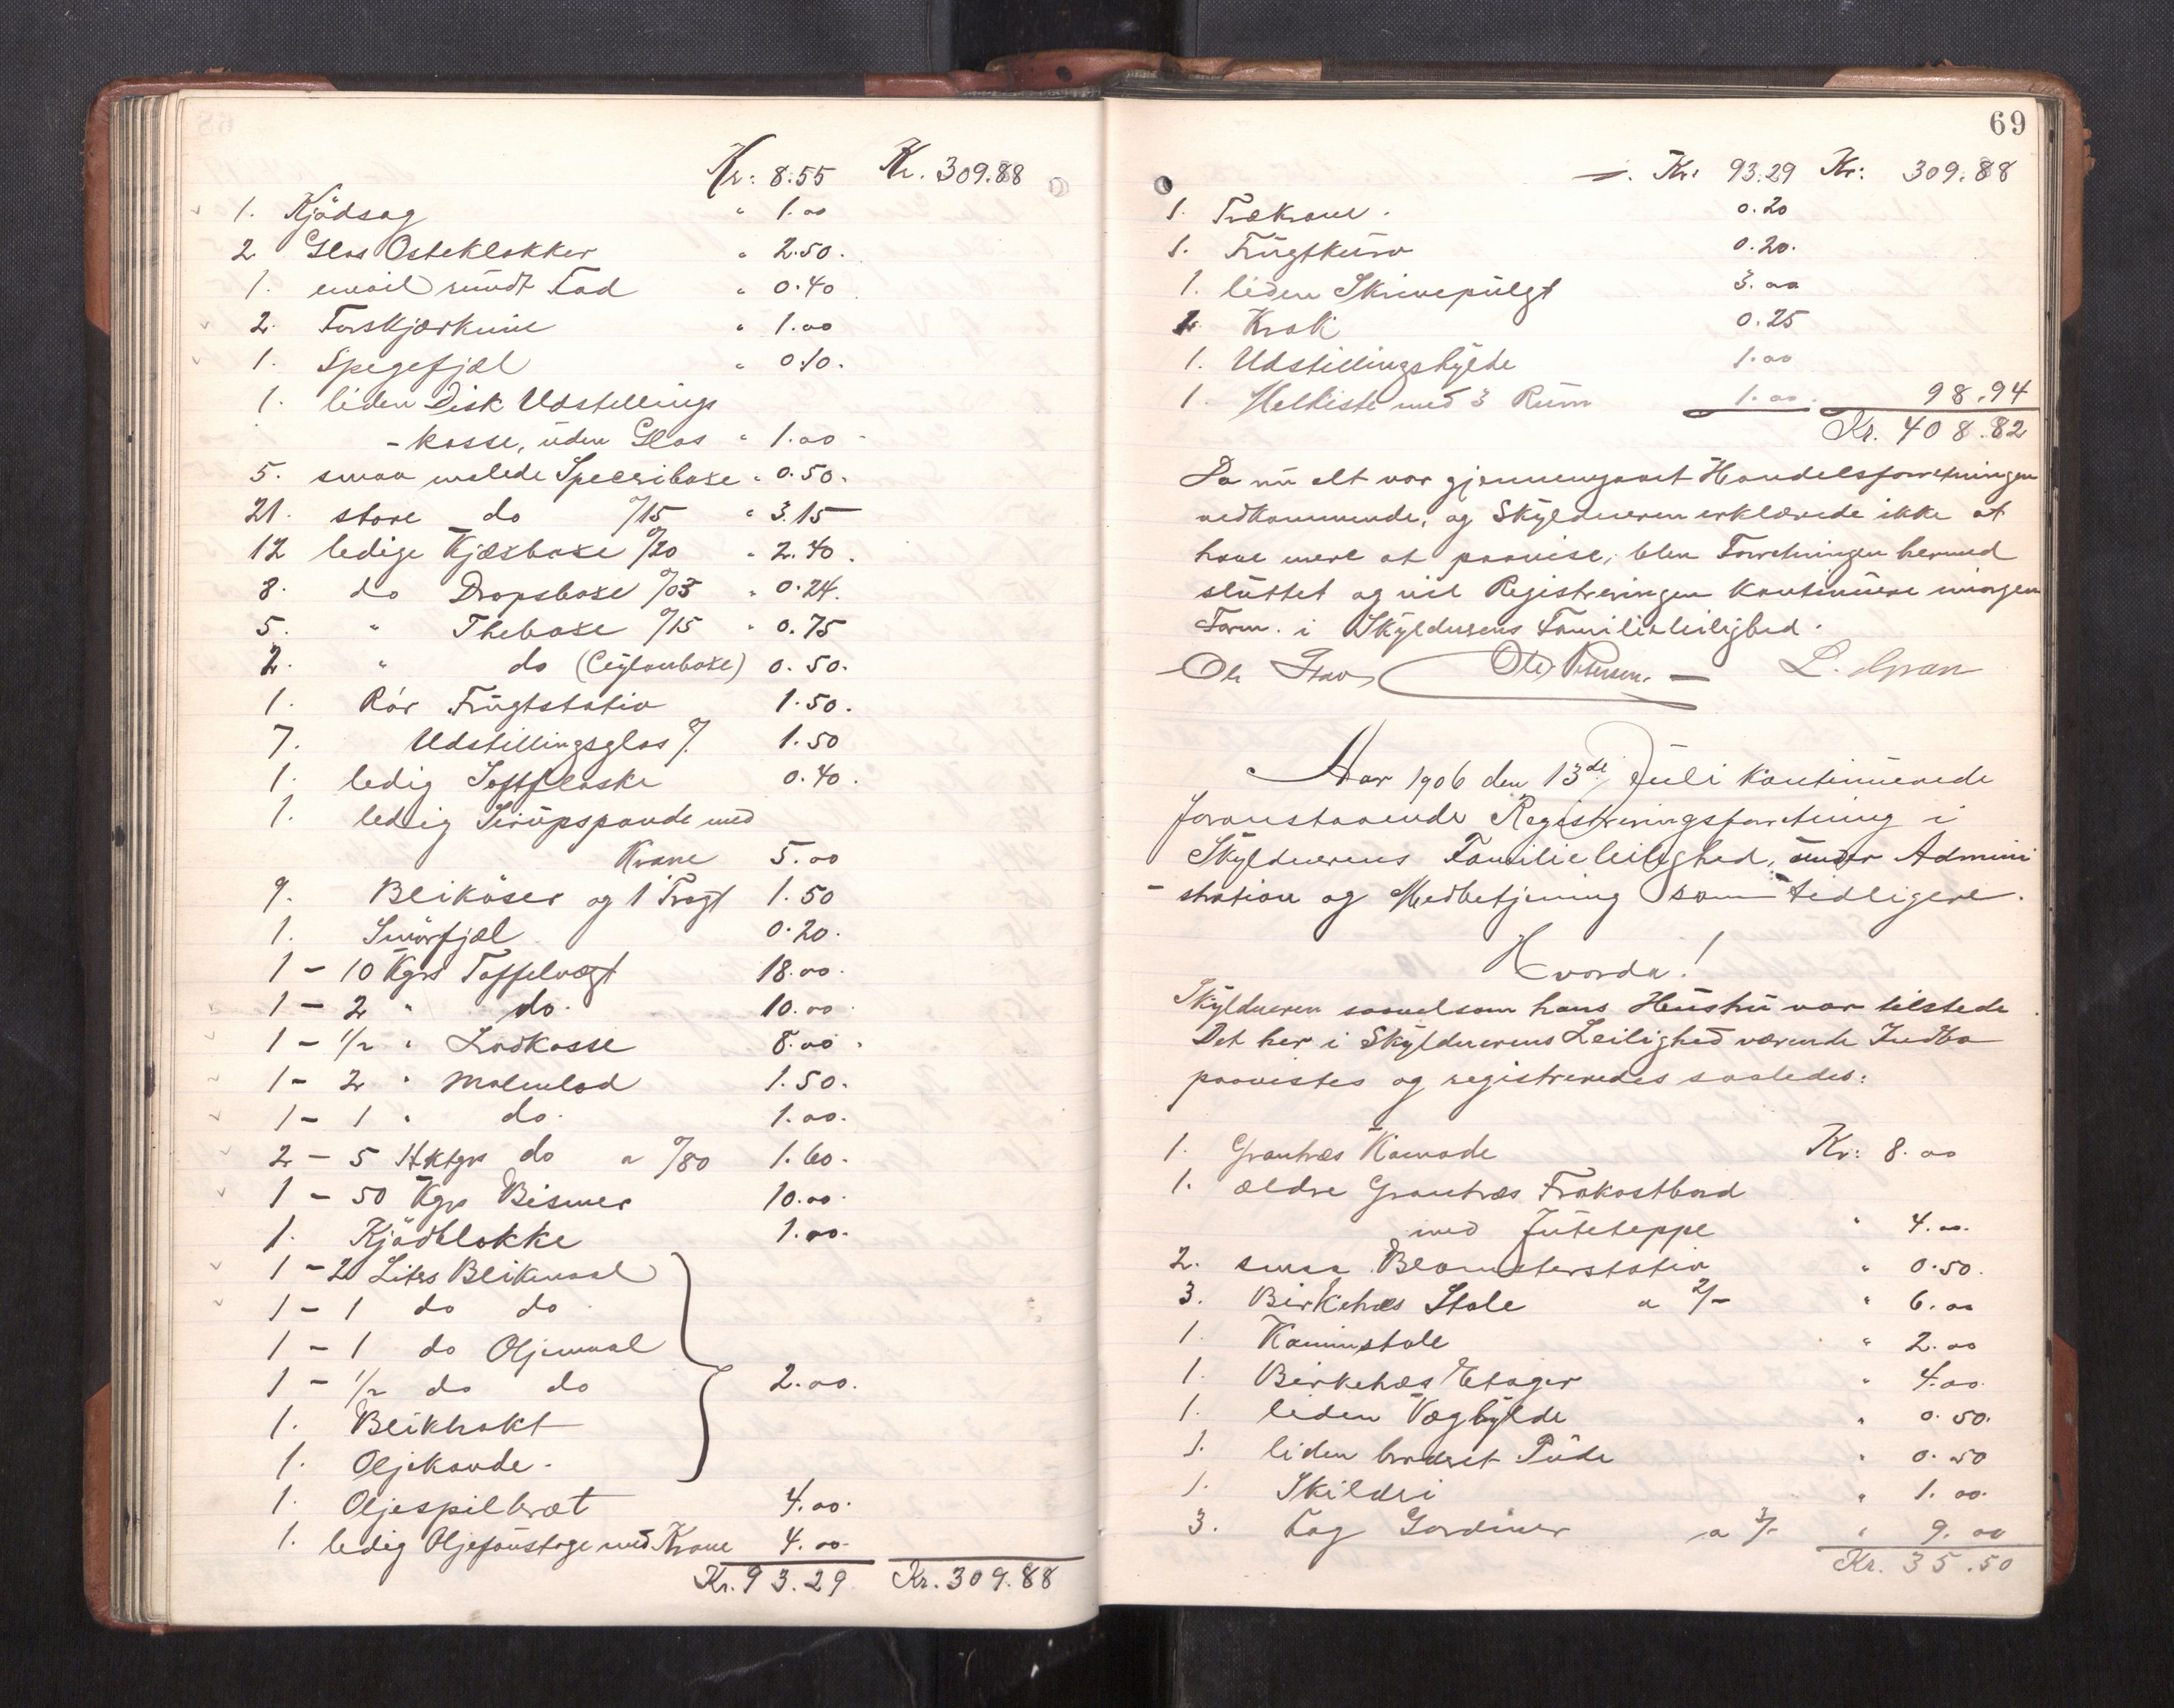 Kr: 8.55 Kr. 309.88
1. Kjödsag " 1.00
2 Glas Osteklokker " 2.50.
1. email rundt Fad " 0.40
2. Forskjærkniv " 1.00
1. Spegefjæl " 0.10.
1. liden Disk Udstillings
- kasse, uden Glas " 1.00 -
5. smaa malede Speceriboxe " 0.50.
21. store do %15 " 3.15
12 ledige Kjæxboxe %20 " 2.40.
8. do Dropsboxe %03 " 0.24.
5. " Theboxe %15 " 0.75
2. " do (Ceylonboxe) 0.50.
1. Rör Frugtstativ 1.50.
7. Udstillingsglas 1.50
1. ledig Saftflaske 0.40.
1. ledig Sirupspande med
Krane 5.00
9. Bliköser og 1 Tragt 1.50
1. Smörfjæl 0.20.
1 - 10 Kgrs Taffelvægt 18.00.
1 - 2 " do. 10.00
1 - 1/2 " Lodkasse 8.00.
1 - 2 " Malmlod 1.50.
1 - 1 " do. 1.00.
2 - 5 Hktgr do a %80 1.60.
1 - 50 Kgs Bismer 10.00.
1. Kjödblokke 1.00.
1 - 2 Liters Blikmaal
1 - 1 do do
1 - 1 do Oljemaal
1 - 1/2 do do 2.00.
1. Bliktrakt
1. Oljekande.
1. Oljespilbræt 4.00.
1. ledig Oljefoustage med Krane 4.00.
Kr. 93.29 Kr. 309.88
69
Kr. 93.29 Kr: 309.88
1. Trækrane. 0.20
1. Frugtkurv 0.20.
1. liden Skrivepulgt 3.00
1. Krak 0.25
1. Udstillingshylde 1.00
1. Melkiste med 3 Rum 1.00. 98.94
Kr. 408.82
Da nu alt var gjennemgaaet Handelsforretningen
vedkommende, og Skyldneren erklærede ikke at
have mere at paavise, blev Forretningen hermed
sluttet og vil Registreringen kontinuere imorgen
Form. i Skyldnerens Familieleilighed.
Ole Stav Ole Petersen. - L. Gran
Aar 1906 den 13de Juli kontinuerede
foranstaaende Registreringsforretning i
Skyldnerens Familieleilighed, under Admini
- stration og Medbetjening som tidligere.
Hvorda!
Skyldneren saavelsom hans Hustru var tilstede.
Det her i Skyldnerens Leilighed værende Indbo
paavistes og registreredes saaledes:
1. Grantræs Komode Kr: 8.00
1. ældre Grantræs Frokostbord
med Juteteppe " 4.00.
2. smaa Blomsterstativ " 0.50.
3. Birketræs Stole a 2/- " 6.00
1. Kaminstole " 2.00
1. Birketræs Etager " 4.00.
1. liden Væghylde " 0.50.
1. liden broderet Pude " 0.50
1. Skilderi " 1.00.
3. Fag Gardiner a 3/- " 9.00
Kr. 35.50